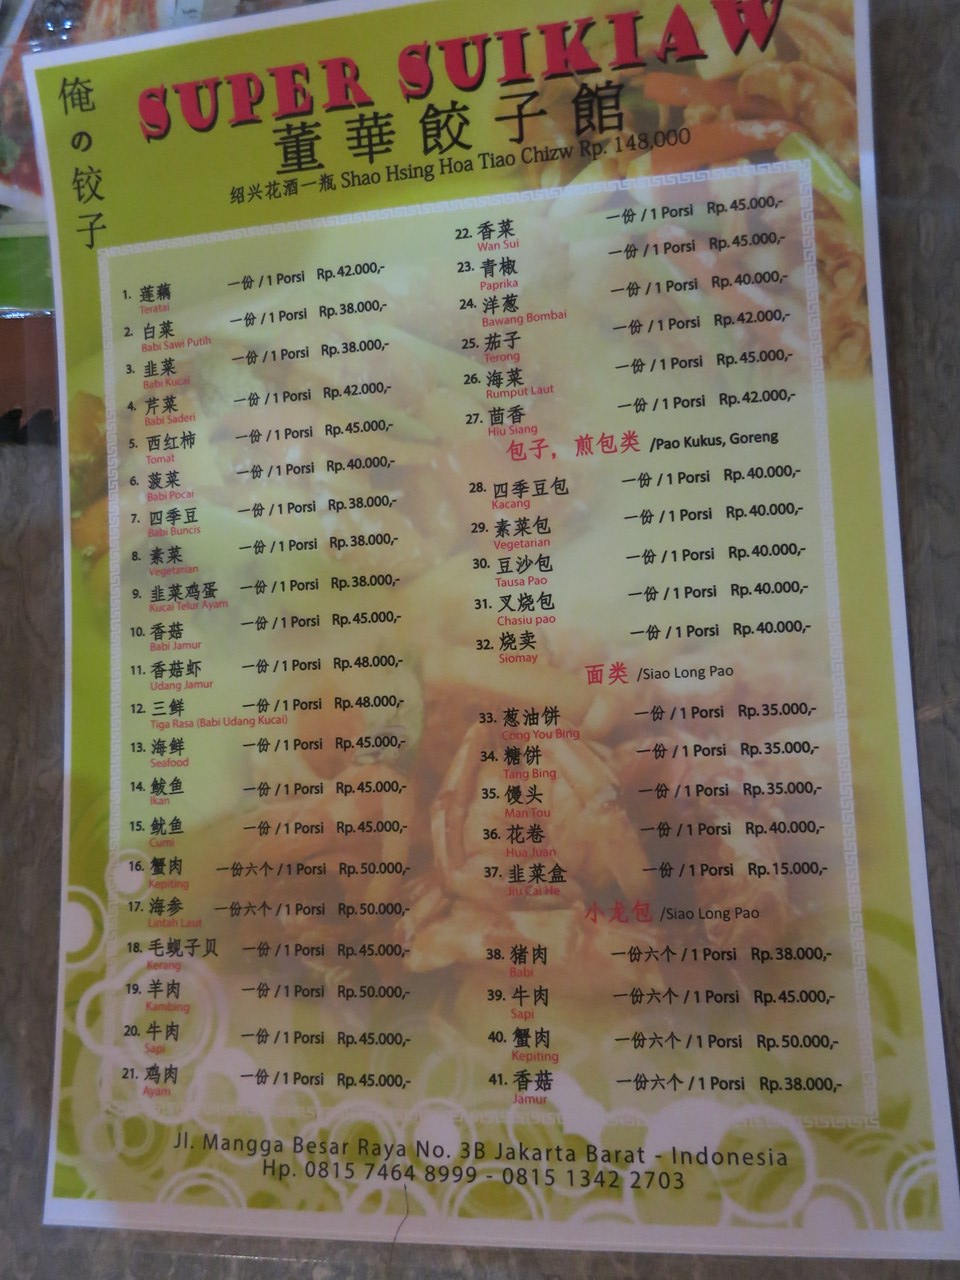 俺の饺子
SUPER SUIKIAW
董華餃子館
绍兴花酒一瓶 Shao Hsing Hoa Tiao Chizw Rp. 148,000
1. 莲藕 一份 / 1 Porsi Rp. 42.000,-
Teratai
2. 白菜 一份 / 1 Porsi Rp. 38.000,-
Babi Sawi Putih
3. 韭菜 一份 / 1 Porsi Rp. 38.000,-
Babi Kucai
4. 芹菜 一份 / 1 Porsi Rp. 42.000,-
Babi Saderi
5. 西红柿 一份 / 1 Porsi Rp. 45.000,-
Tomat
6. 菠菜 一份 / 1 Porsi Rp. 40.000,-
Babi Pocai
7. 四季豆 一份 / 1 Porsi Rp. 38.000,-
Babi Buncis
8. 素菜 一份 / 1 Porsi Rp. 38.000,-
Vegetarian
9. 韭菜鸡蛋 一份 / 1 Porsi Rp. 38.000,-
Kucai Telur Ayam
10. 香菇 一份 / 1 Porsi Rp. 45.000,-
Babi Jamur
11. 香菇虾 一份 / 1 Porsi Rp. 48.000,-
Udang Jamur
12. 三鲜 一份 / 1 Porsi Rp. 48.000,-
Tiga Rasa (Babi Udang Kucai)
13. 海鲜 一份 / 1 Porsi Rp. 45.000,-
Seafood
14. 鲅鱼 一份 / 1 Porsi Rp. 45.000,-
Ikan
15. 鱿鱼 一份 / 1 Porsi Rp. 45.000,-
Cumi
16. 蟹肉 一份六个 / 1 Porsi Rp. 50.000,-
Kepiting
17. 海参 一份六个 / 1 Porsi Rp. 50.000,-
Lintah Laut
18. 毛蚬子贝 一份 / 1 Porsi Rp. 45.000,-
Kerang
19. 羊肉 一份 / 1 Porsi Rp. 50.000,-
Kambing
20. 牛肉 一份 / 1 Porsi Rp. 45.000,-
Sapi
21. 鸡肉 一份 / 1 Porsi Rp. 45.000,-
Ayam
22. 香菜 一份 / 1 Porsi Rp. 45.000,-
Wan Sui
23. 青椒 一份 / 1 Porsi Rp. 45.000,-
Paprika
24. 洋葱 一份 / 1 Porsi Rp. 40.000,-
Bawang Bombai
25. 茄子 一份 / 1 Porsi Rp. 42.000,-
Terong
26. 海菜 一份 / 1 Porsi Rp. 45.000,-
Rumput Laut
27. 茴香 一份 / 1 Porsi Rp. 42.000,-
Hiu Siang
包子，煎包类 /Pao Kukus, Goreng
28. 四季豆包 一份 / 1 Porsi Rp. 40.000,-
Kacang
29. 素菜包 一份 / 1 Porsi Rp. 40.000,-
Vegetarian
30. 豆沙包 一份 / 1 Porsi Rp. 40.000,-
Tausa Pao
31. 叉烧包 一份 / 1 Porsi Rp. 40.000,-
Chasiu pao
32. 烧卖 一份 / 1 Porsi Rp. 40.000,-
Siomay
面类 /Siao Long Pao
33. 葱油饼 一份 / 1 Porsi Rp. 35.000,-
Cong You Bing
34. 糖饼 一份 / 1 Porsi Rp. 35.000,-
Tang Bing
35. 馒头 一份 / 1 Porsi Rp. 35.000,-
Man Tou
36. 花卷 一份 / 1 Porsi Rp. 40.000,-
Hua Juan
37. 韭菜盒 一份 / 1 Porsi Rp. 15.000,-
Jiu Cai He
小龙包 /Siao Long Pao
38. 猪肉 一份六个 / 1 Porsi Rp. 38.000,-
Babi
39. 牛肉 一份六个 / 1 Porsi Rp. 45.000,-
Sapi
40. 蟹肉 一份六个 / 1 Porsi Rp. 50.000,-
Kepiting
41. 香菇 一份六个 / 1 Porsi Rp. 38.000,-
Jamur
Jl. Mangga Besar Raya No. 3B Jakarta Barat - Indonesia
Hp. 0815 7464 8999 - 0815 1342 2703